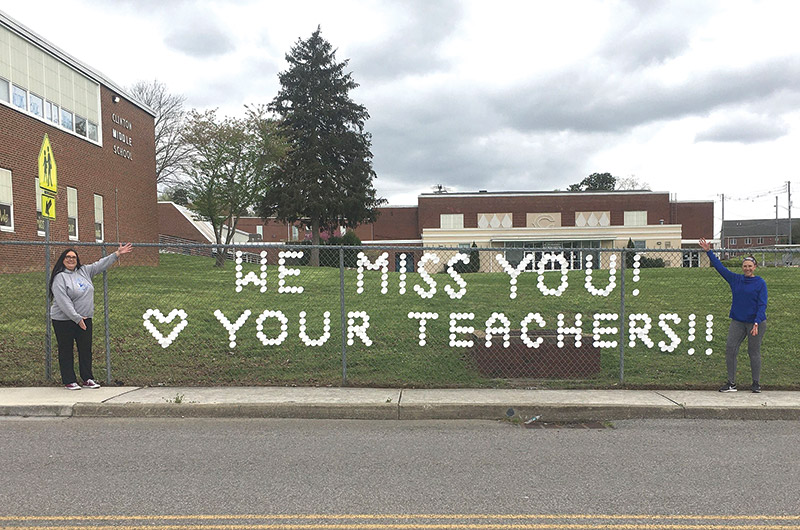 CLINTON
MIDDLE
SCHOOL
WE MISS YOU!
♡ YOUR TEACHERS!!